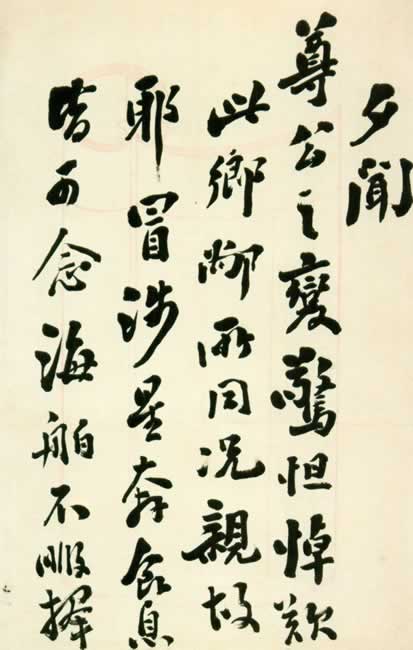 夕聞
尊公之變驚怛悼歎
此鄉鄰所同況親故
耶冒涉星奔食息
皆可念海舶不暇擇